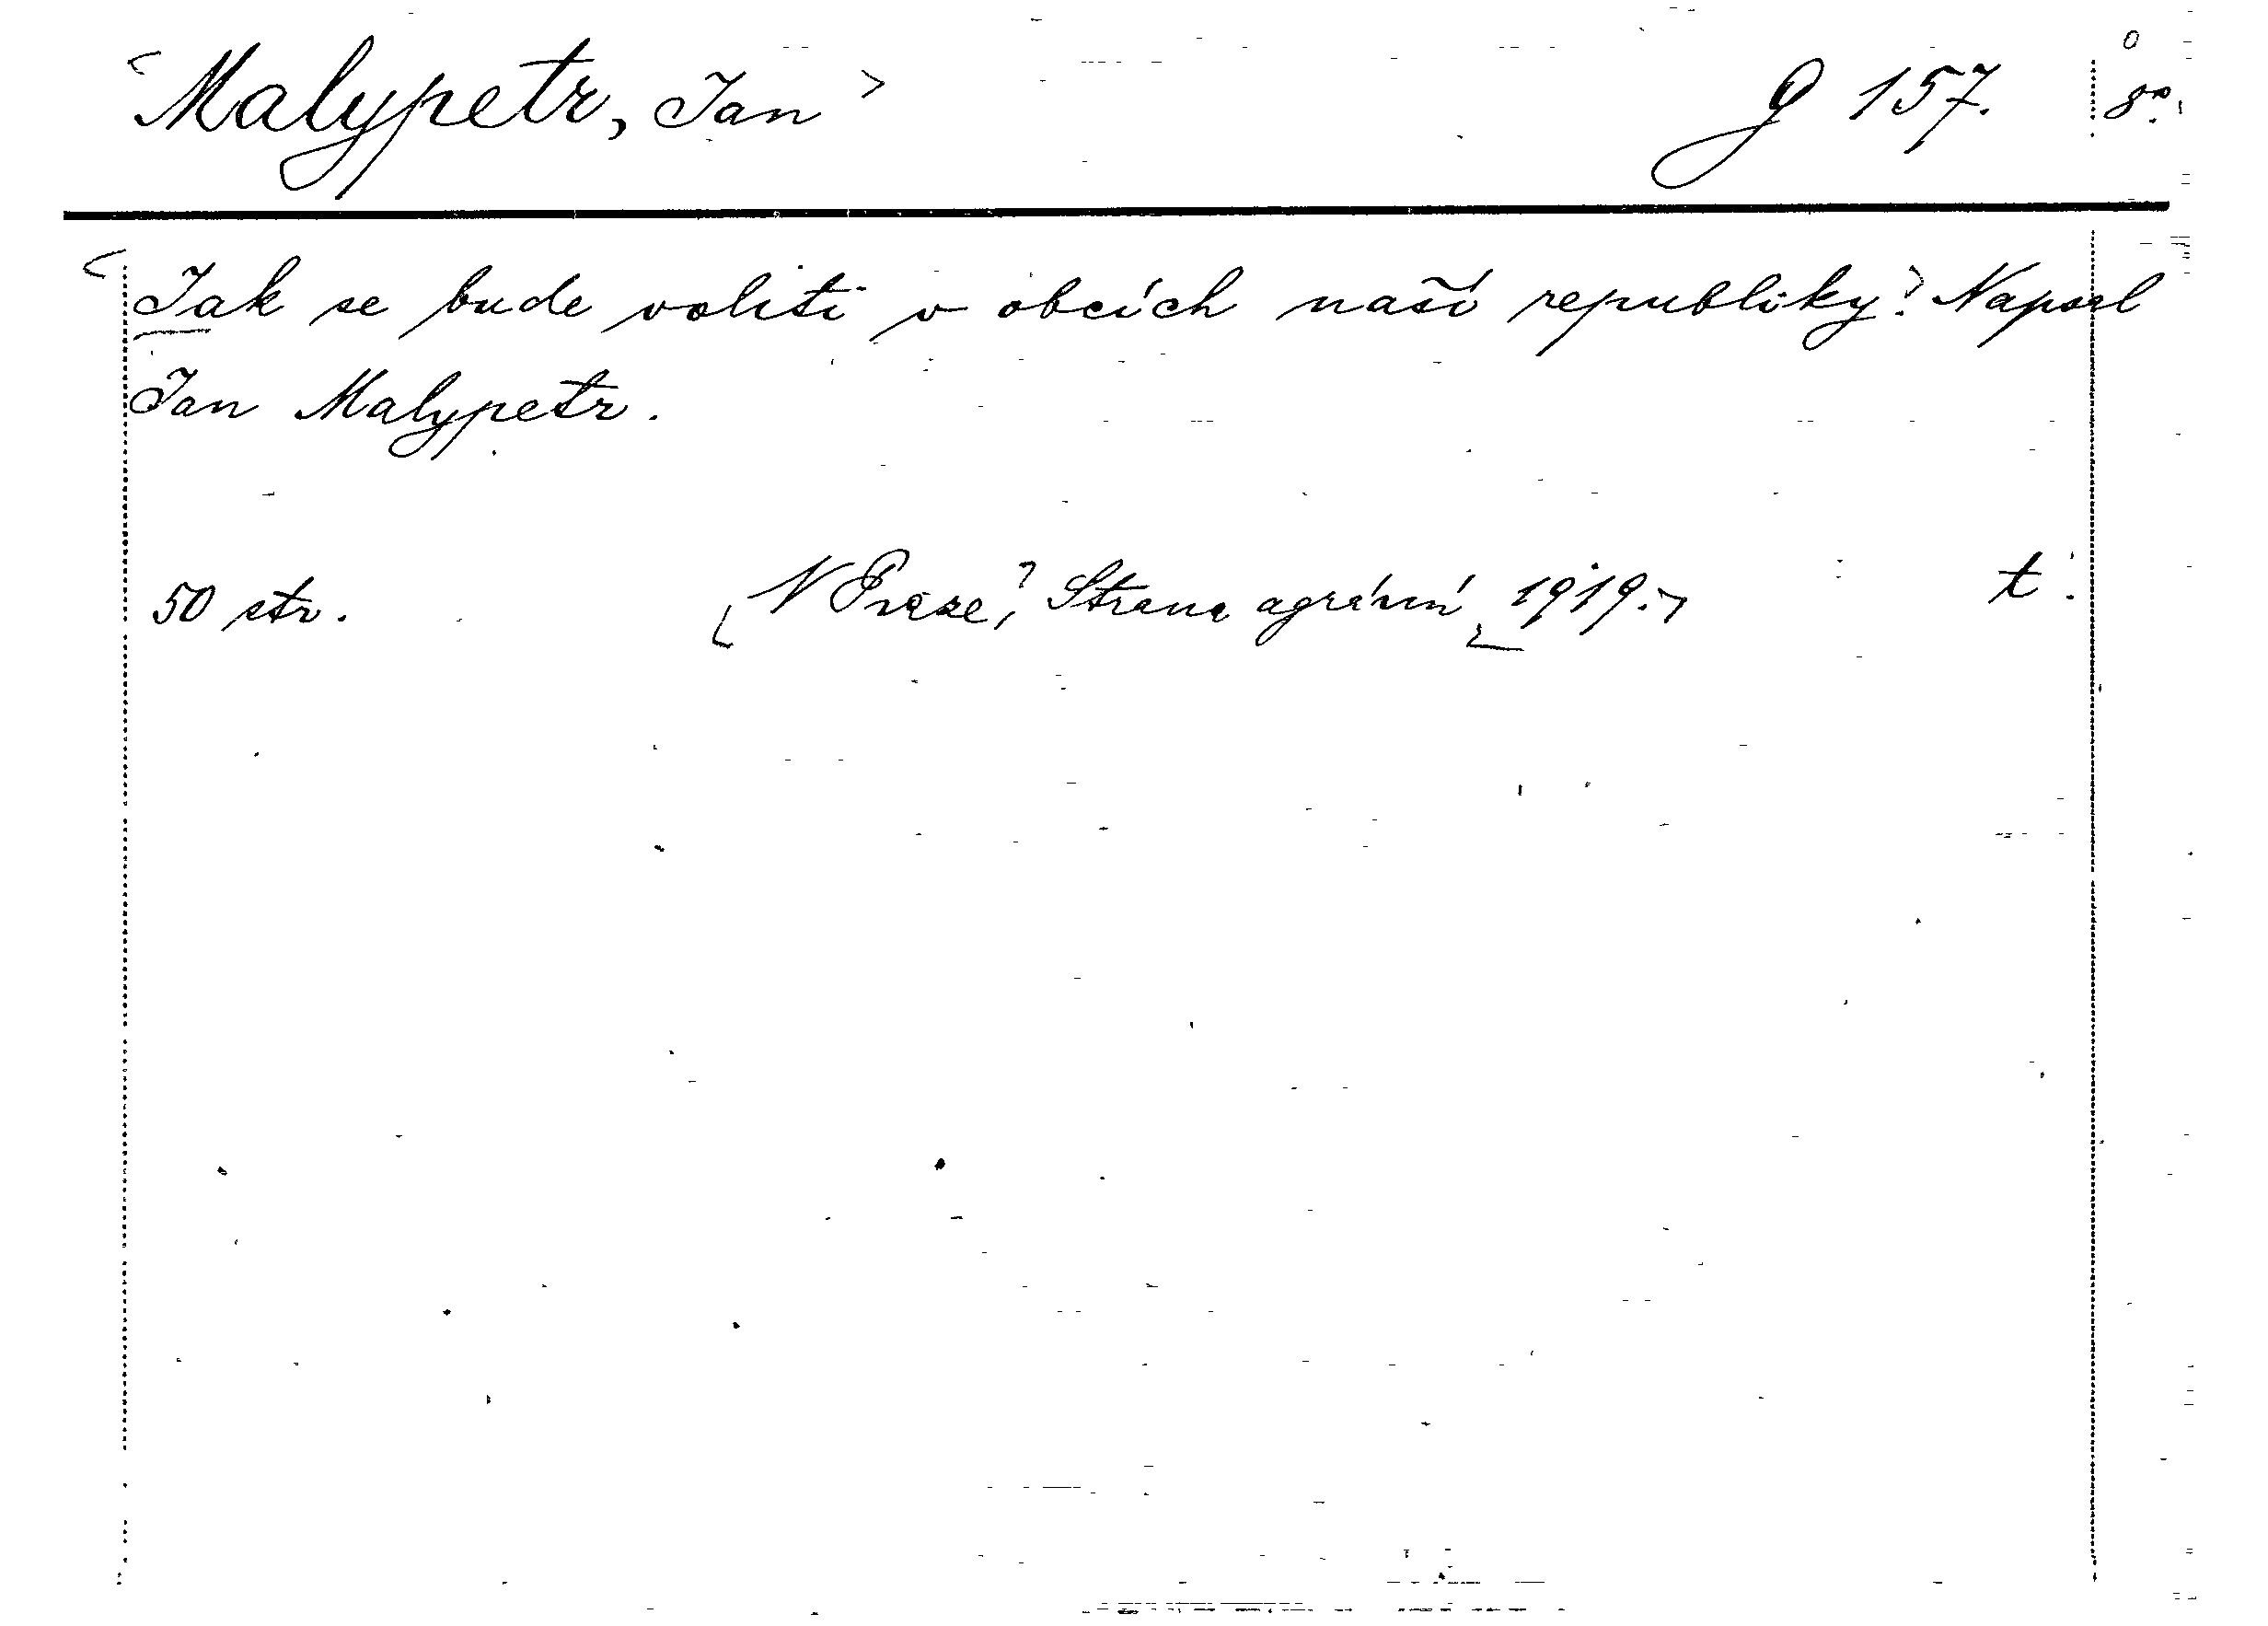 <Malypetr, Jan> g 157. 8°.
<Jak se bude voliti v obcích naší republiky?> Napsal
Jan Malypetr.
50 str. V Praze, Strana agrární 1919. t.